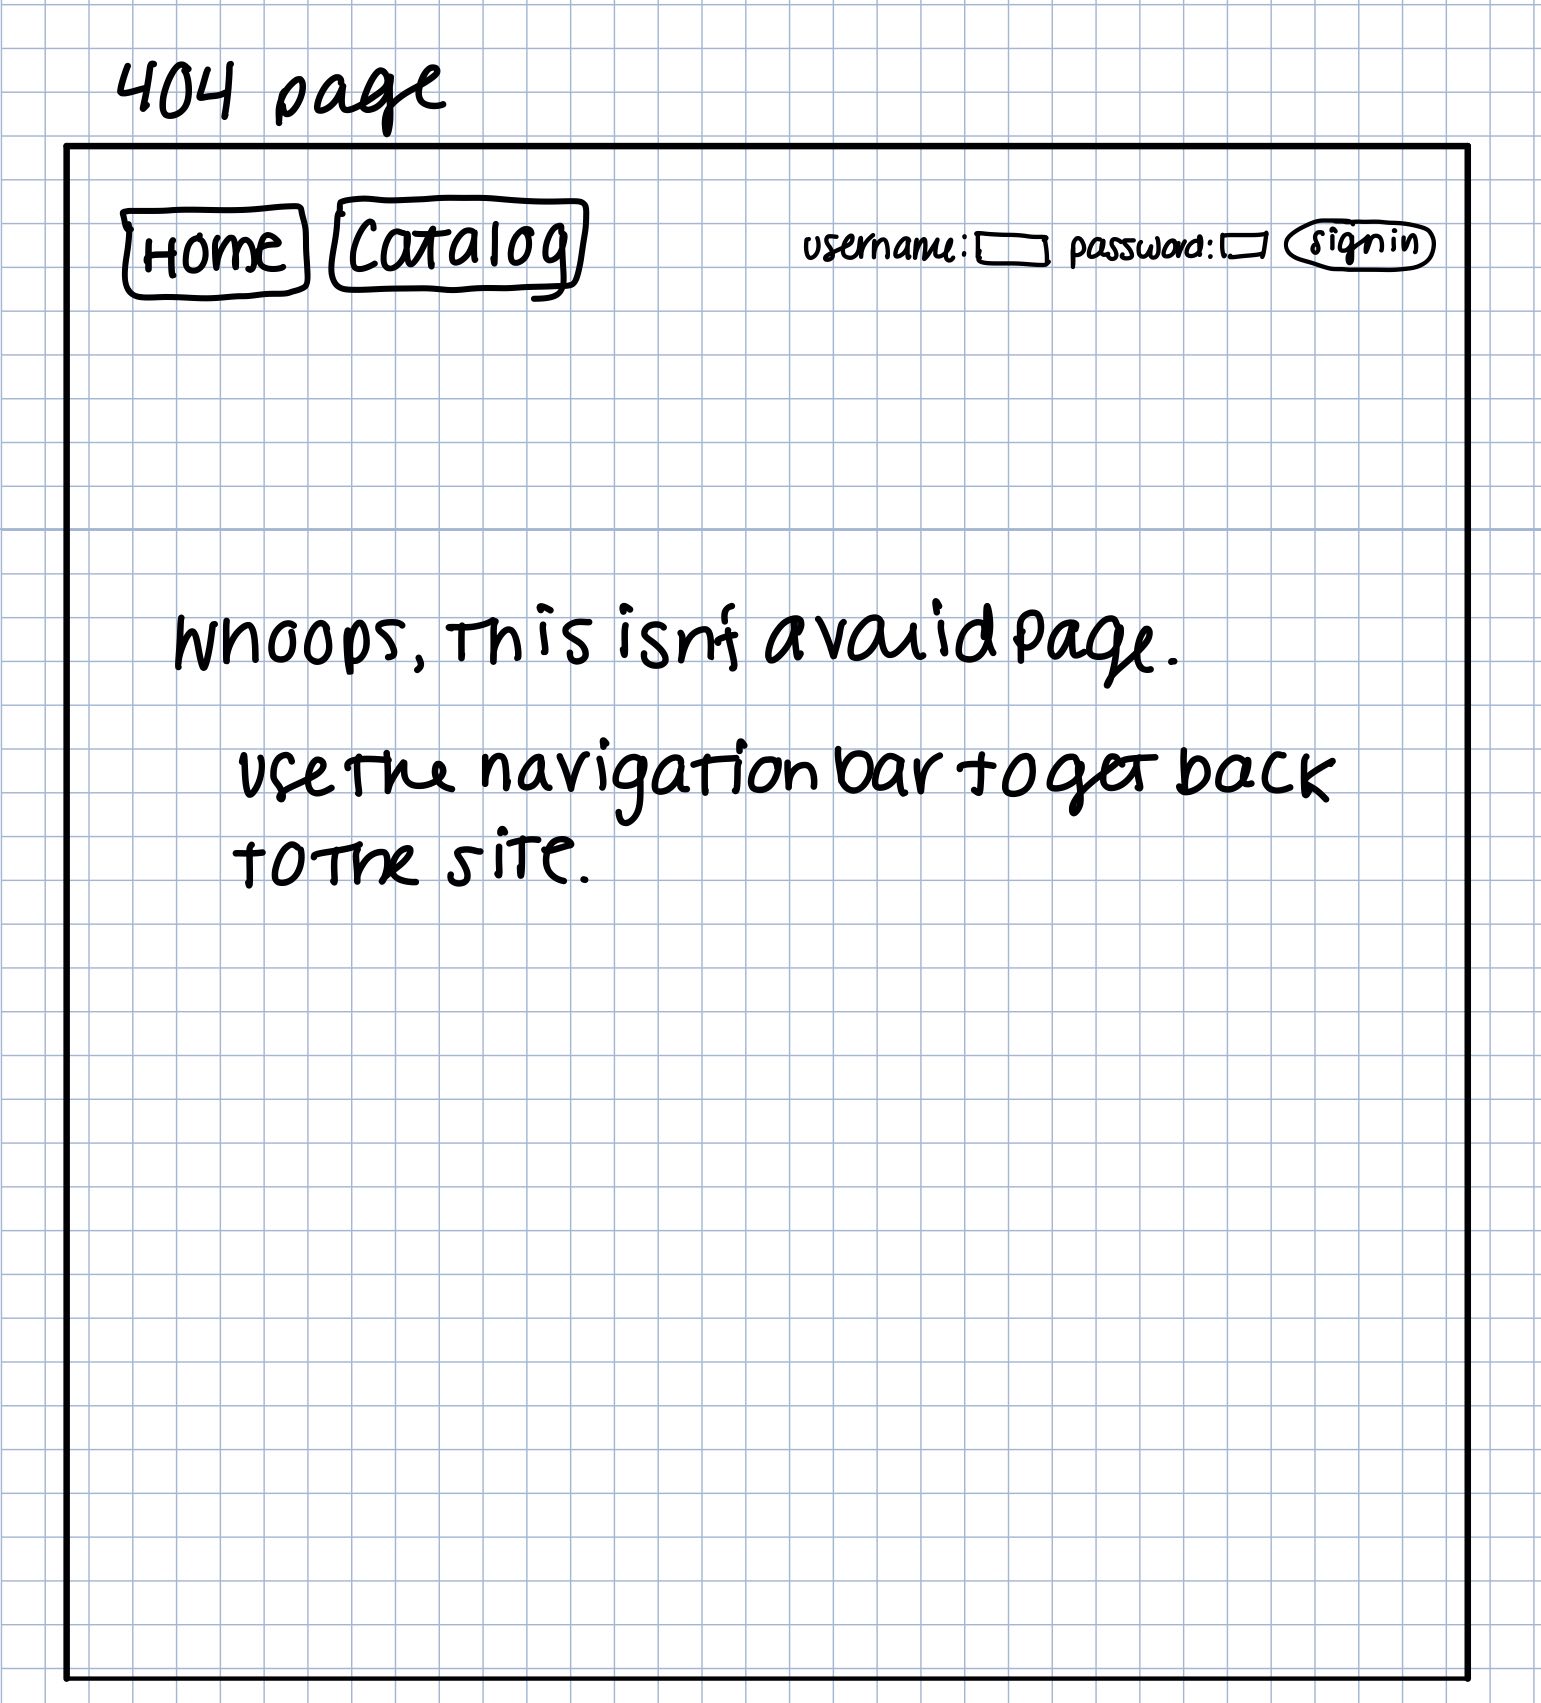 404 page
Home Catalog username: password: sign in
whoops, This isn't a valid page.
use the navigation bar to get back
to the site.